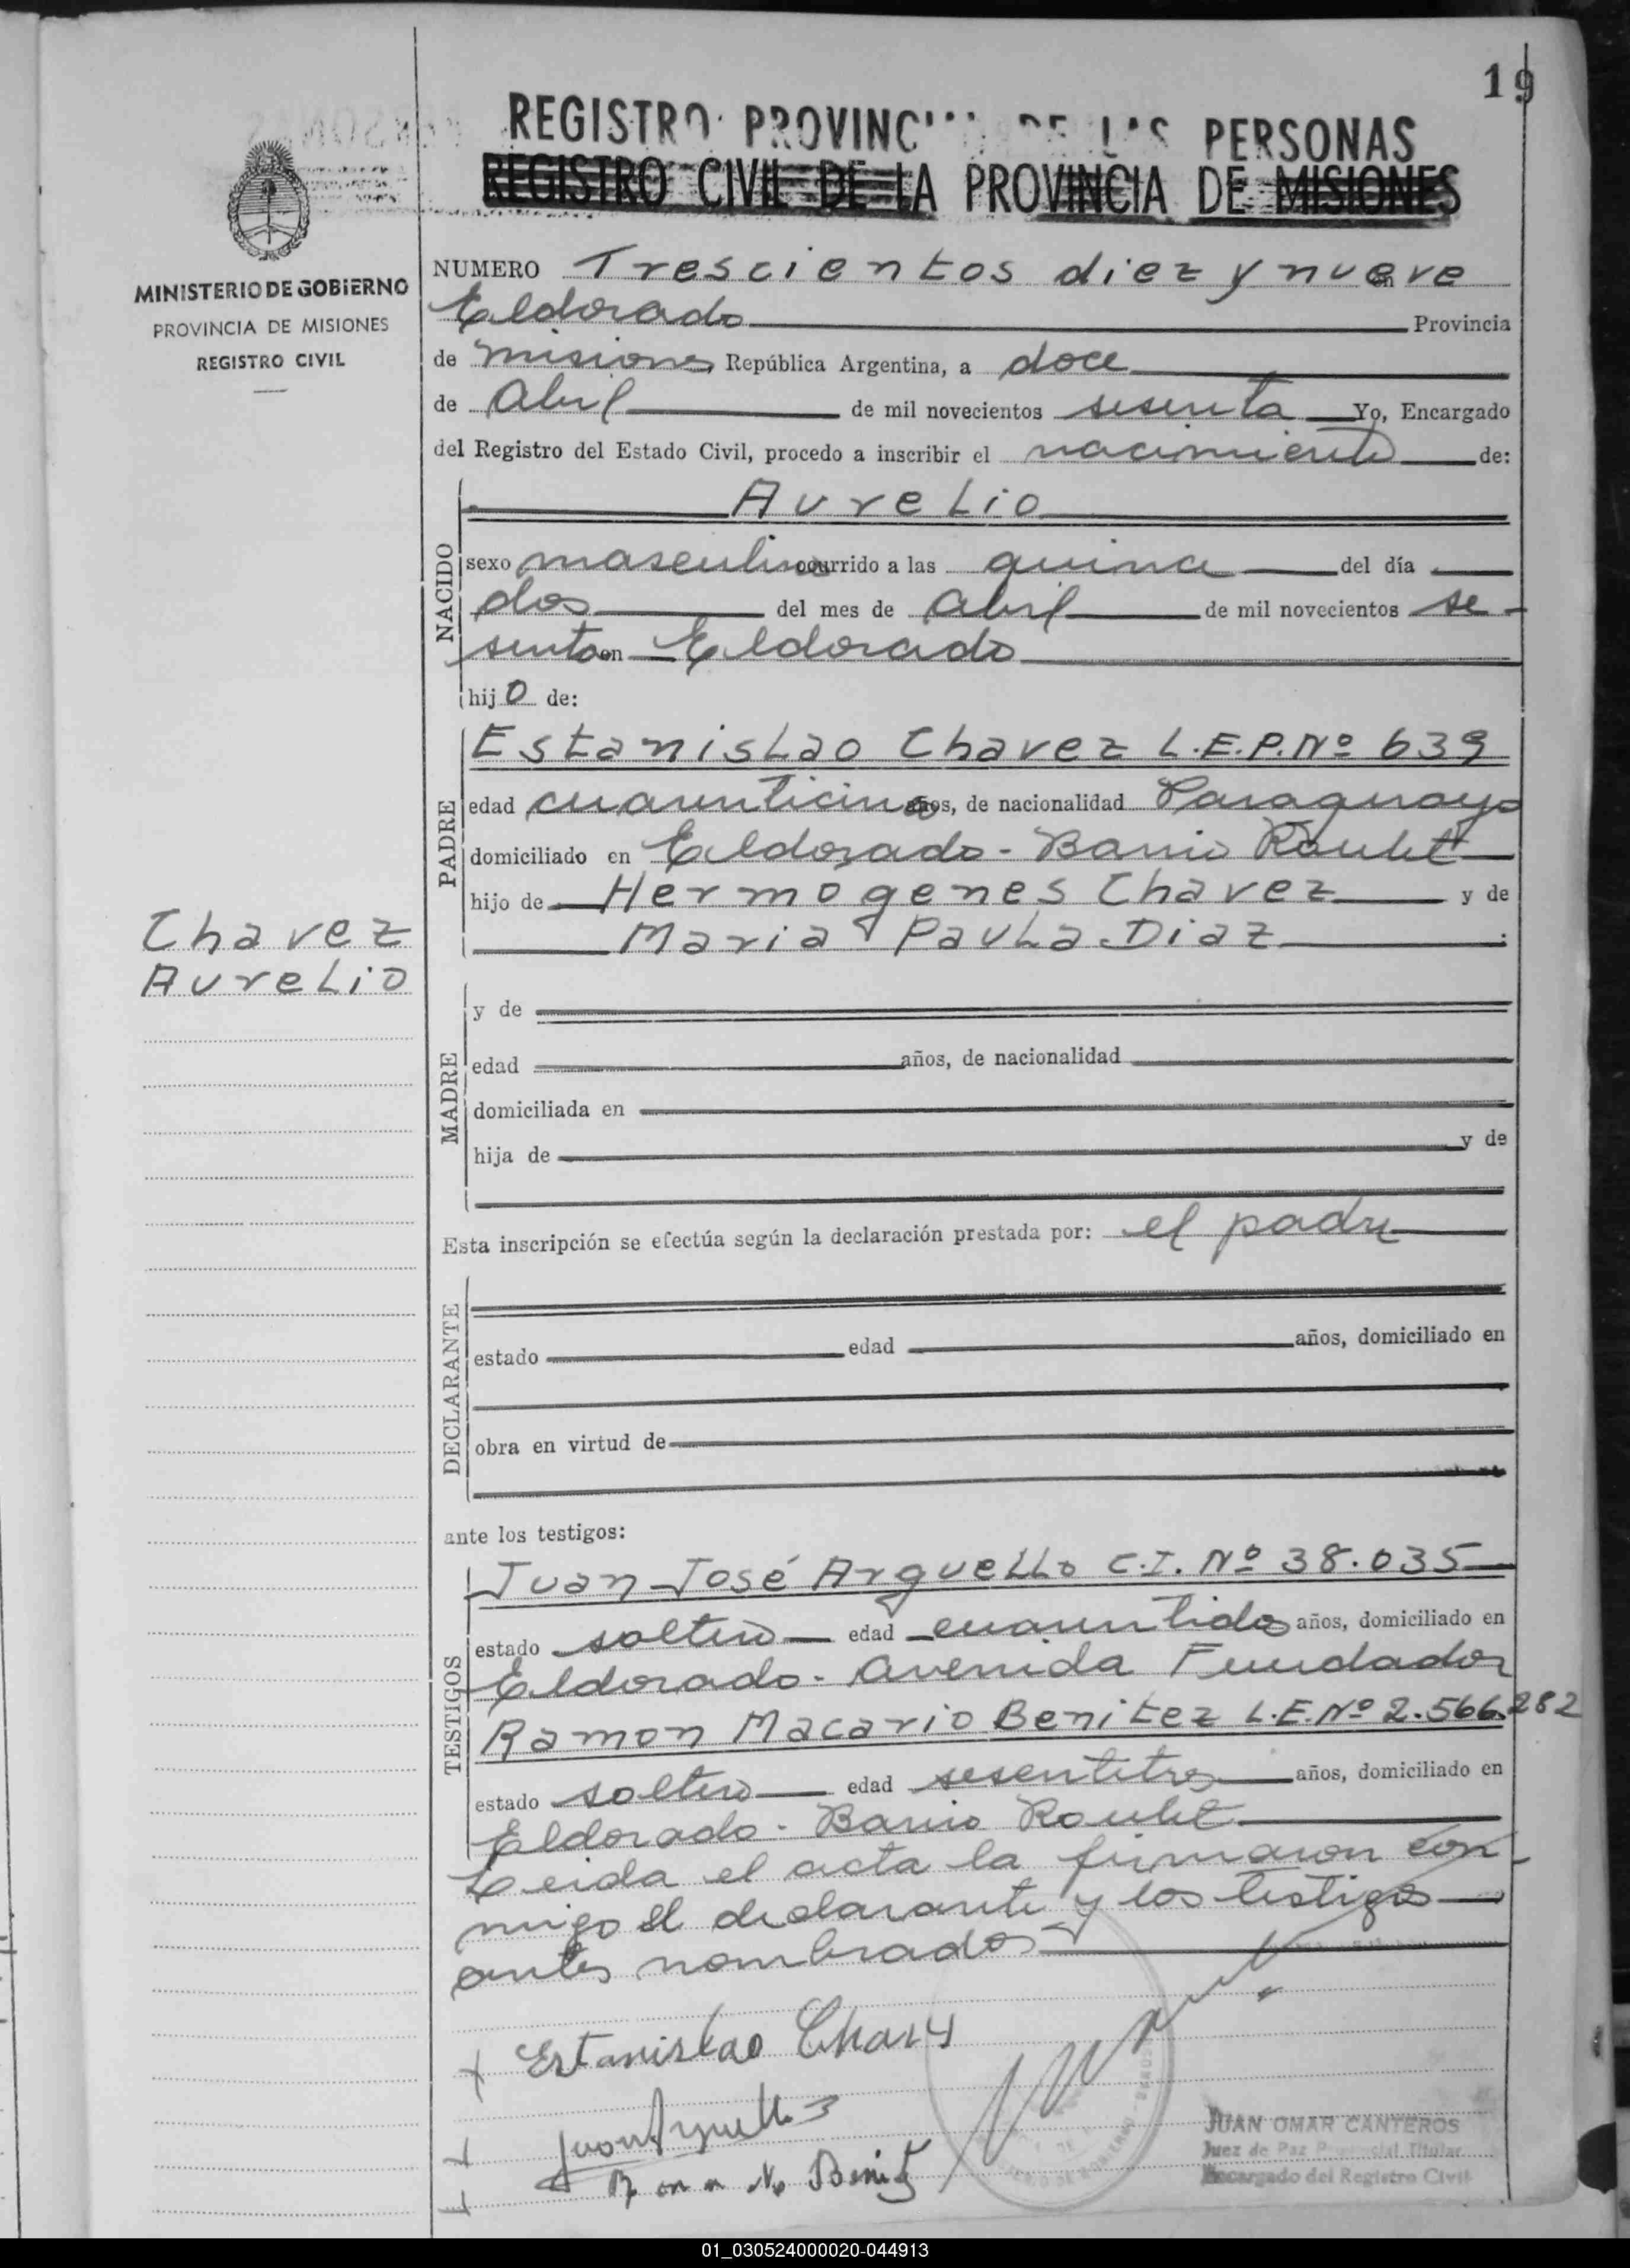 19
REGISTRO PROVINCIAL DE LAS PERSONAS
REGISTRO CIVIL DE LA PROVINCIA DE MISIONES
MINISTERIO DE GOBIERNO
PROVINCIA DE MISIONES
REGISTRO CIVIL
NUMERO Trescientos diez y nueve en
Eldorado Provincia
de misiones República Argentina, a doce
de Abril de mil novecientos sesenta Yo, Encargado
del Registro del Estado Civil, procedo a inscribir el nacimiento de:
NACIDO
Aurelio
sexo masculino ocurrido a las quince del día
dos del mes de Abril de mil novecientos se-
senta en Eldorado
hijo de:
PADRE
Estanislao Chavez L.E.P.Nº 639
edad cuarenticinco años, de nacionalidad Paraguayo
domiciliado en Eldorado - Barrio Roulet
hijo de Hermogenes Chavez y de
Maria Paula Diaz
Chavez
Aurelio
MADRE
y de
edad años, de nacionalidad
domiciliada en
hija de y de
Esta inscripción se efectúa según la declaración prestada por: el padre
DECLARANTE
estado edad años, domiciliado en
obra en virtud de
ante los testigos:
TESTIGOS
Juan José Arguello C.I. Nº 38.035
estado soltero edad cuarentidos años, domiciliado en
Eldorado - Avenida Fundador
Ramon Macario Benitez L.E.Nº 2.566.282
estado soltero edad sesentitres años, domiciliado en
Eldorado - Barrio Roulet
Leida el acta la firmaron con-
migo el declarante y los testigos
antes nombrados
Estanislao Chavez
Juan Arguello
Benitez
JUAN OMAR CANTEROS
Juez de Paz Provincial Titular
Encargado del Registro Civil
01_030524000020-044913